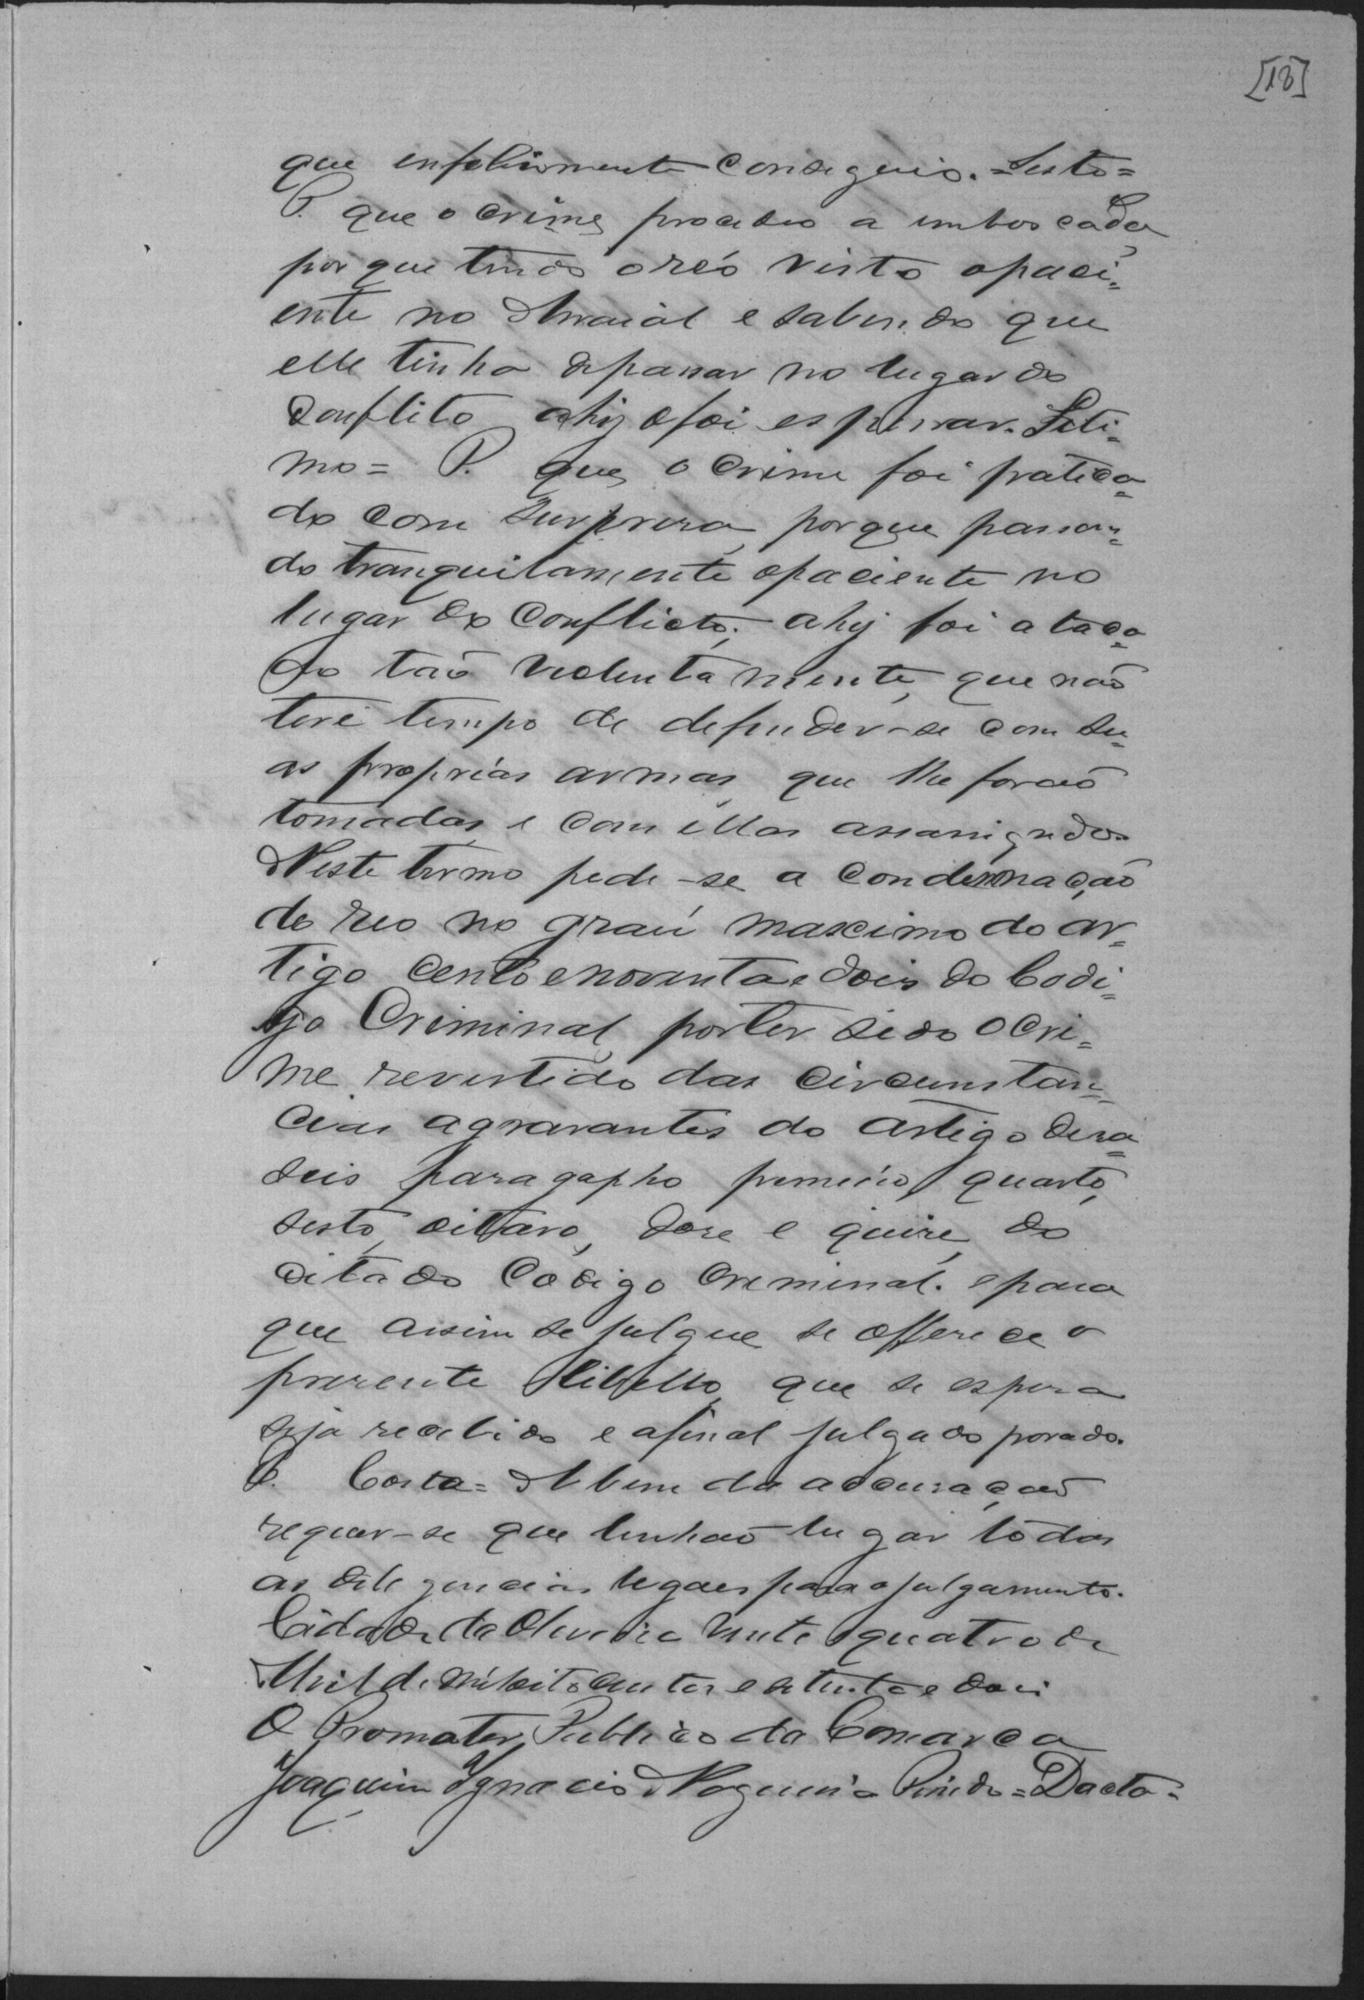 [18]
que infelismente conseguio. = Sesto =
P. que o crime procedeo a emboscada,
por que tendo o reo visto o paci=
ente no Arraial e sabendo que
elle tinha de passar no lugar do
Conflito ahy o foi esperar. Seti=
mo = P. que o crime foi pratica=
do com surpreza, porque passan=
do tranquilamente o paciente no
lugar do Conflicto, ahy foi ataca=
do taõ violentamente, que naõ
teve tempo de defender-se com su=
as proprias armas, que lhe foraõ
tomadas e com ellas assassignado.
Neste termo pede-se a Condemnaçaõ
do reo no grau maximo do ar=
tigo cento e noventa e dois do Codi=
go Criminal, por ter sido o cri=
me revestido das circumstan=
cias agravantes do artigo deza=
seis paragapho primeiro, quarto,
sesto, oitavo, doze e quize, do
citado Codigo Creminal. e para
que assim se julgue se offerece o
prezente Libello, que se espera
seja recebido e afinal julgado provado.
P. Costa = A bem da acauzaçaõ
requer-se que tenhaõ lugar todas
as deligencias legaes para o julgamento.
Cidade de Oliveira vinte e quatro de
Abril de mil oito centos e setenta e dois
O Promotor Publico da Comarca
Joaquim Ignacio Nogueira Penido = Dacta =